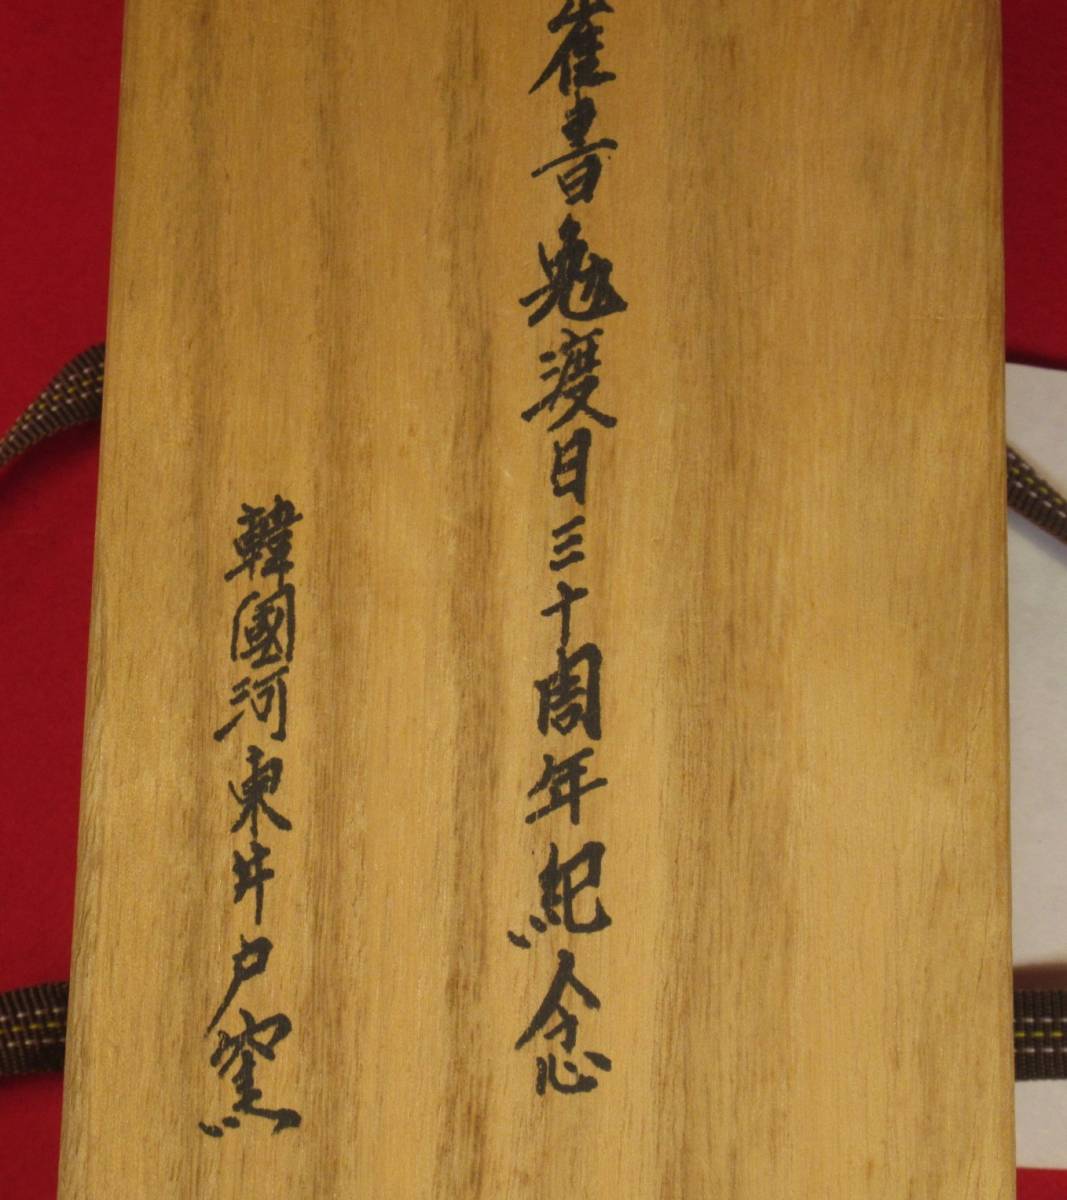 崔書勉渡日三十周年紀念
韓國河東井戸窯